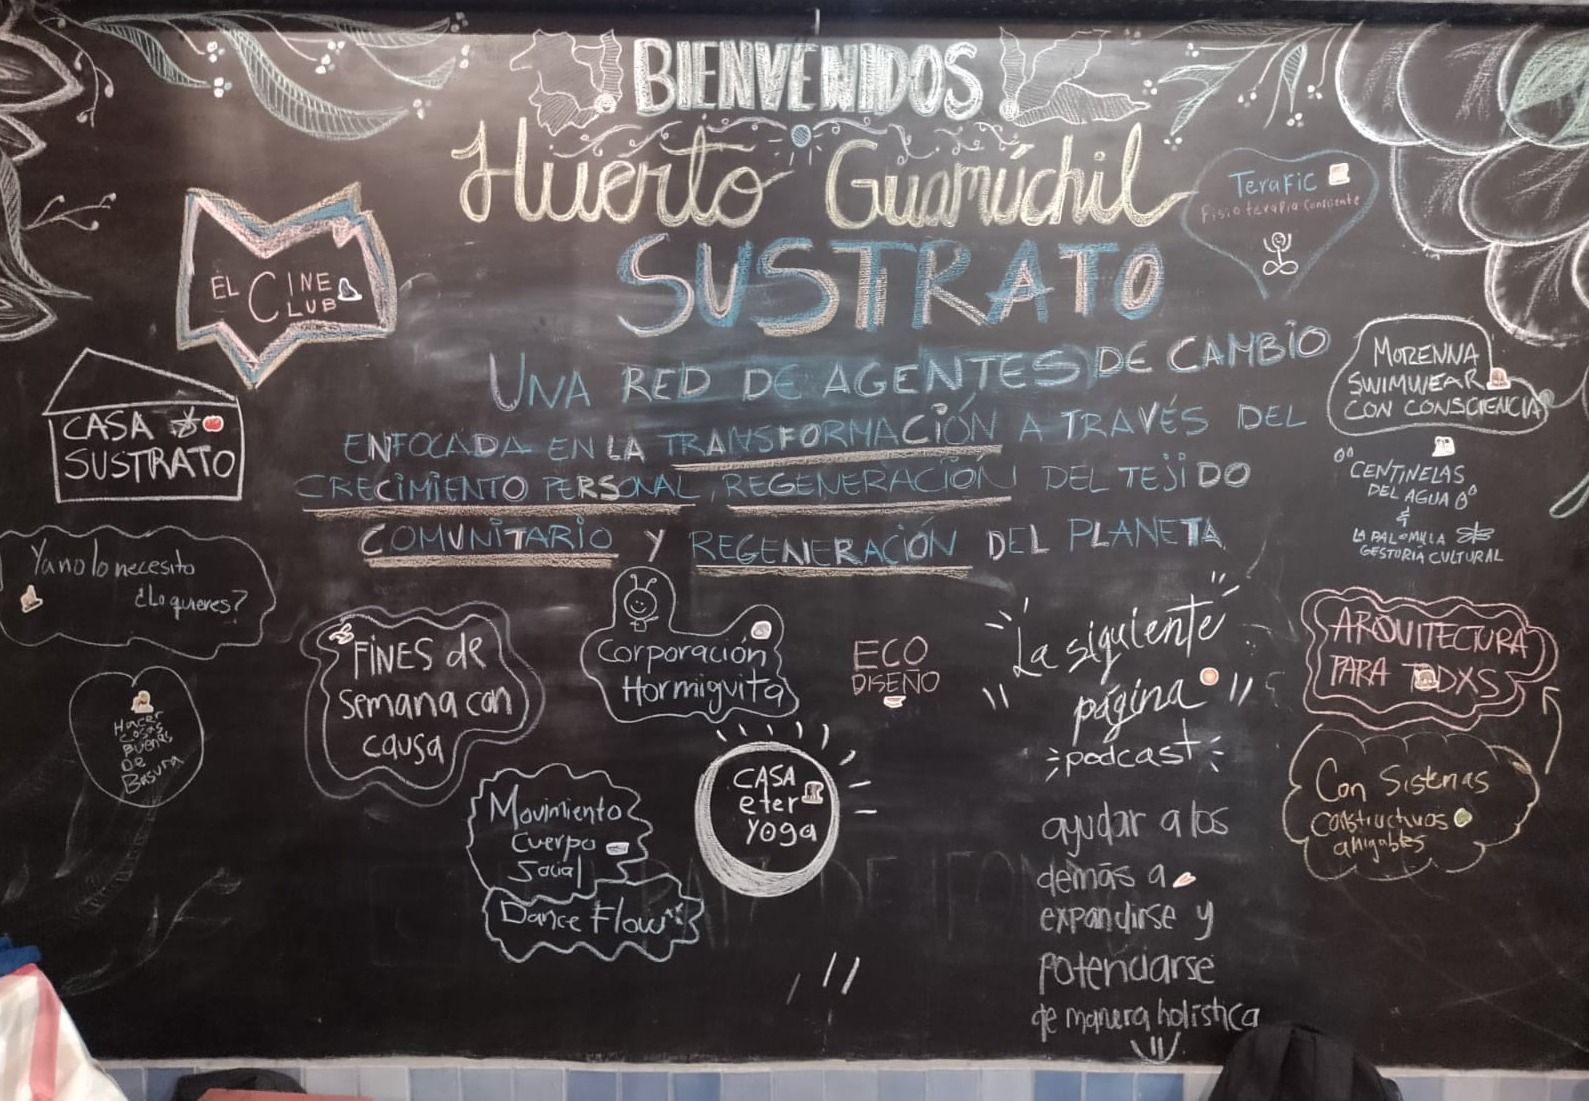 BIENVENIDOS
Huerto Guamúchil
SUSTRATO
UNA RED DE AGENTES DE CAMBIO
ENFOCADA EN LA TRANSFORMACIÓN A TRAVÉS DEL
CRECIMIENTO PERSONAL, REGENERACIÓN DEL TEJIDO
COMUNITARIO Y REGENERACIÓN DEL PLANETA
EL CINE
CLUB
CASA
SUSTRATO
Ya no lo necesito
¿Lo quieres?
Hacer
Cosas
Buenas
De
Basura
FINES de
semana con
causa
Corporación
Hormiguita
Movimiento
Cuerpo
Social
Dance Flow
CASA
eter
yoga
ECO
DISEÑO
La siguiente
página
podcast
ayudar a los
demás a
expandirse y
potenciarse
de manera holística
TeraFic
Fisioterapia Consciente
MORENNA
SWIMWEAR
CON CONSCIENCIA
CENTINELAS
DEL AGUA
&
LA PALOMILLA
GESTORIA CULTURAL
ARQUITECTURA
PARA TODXS
Con Sistemas
Constructivos
amigables